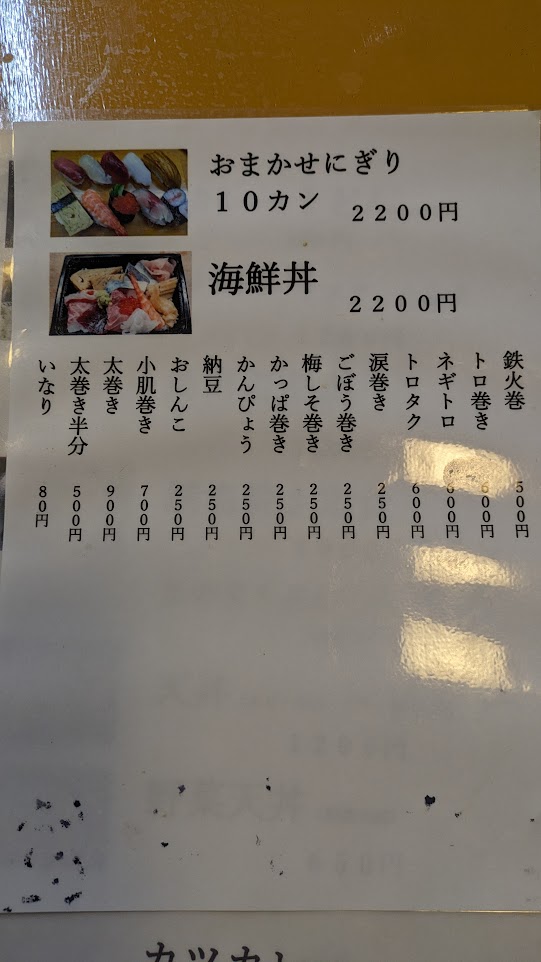 おまかせにぎり
１０カン　２２００円
海鮮丼
２２００円
鉄火巻　５００円
トロ巻き　６００円
ネギトロ　６００円
トロタク　６００円
涙巻き　２５０円
ごぼう巻き　２５０円
梅しそ巻き　２５０円
かっぱ巻き　２５０円
かんぴょう　２５０円
納豆　２５０円
おしんこ　２５０円
小肌巻き　７００円
太巻き　９００円
太巻き半分　５００円
いなり　８０円